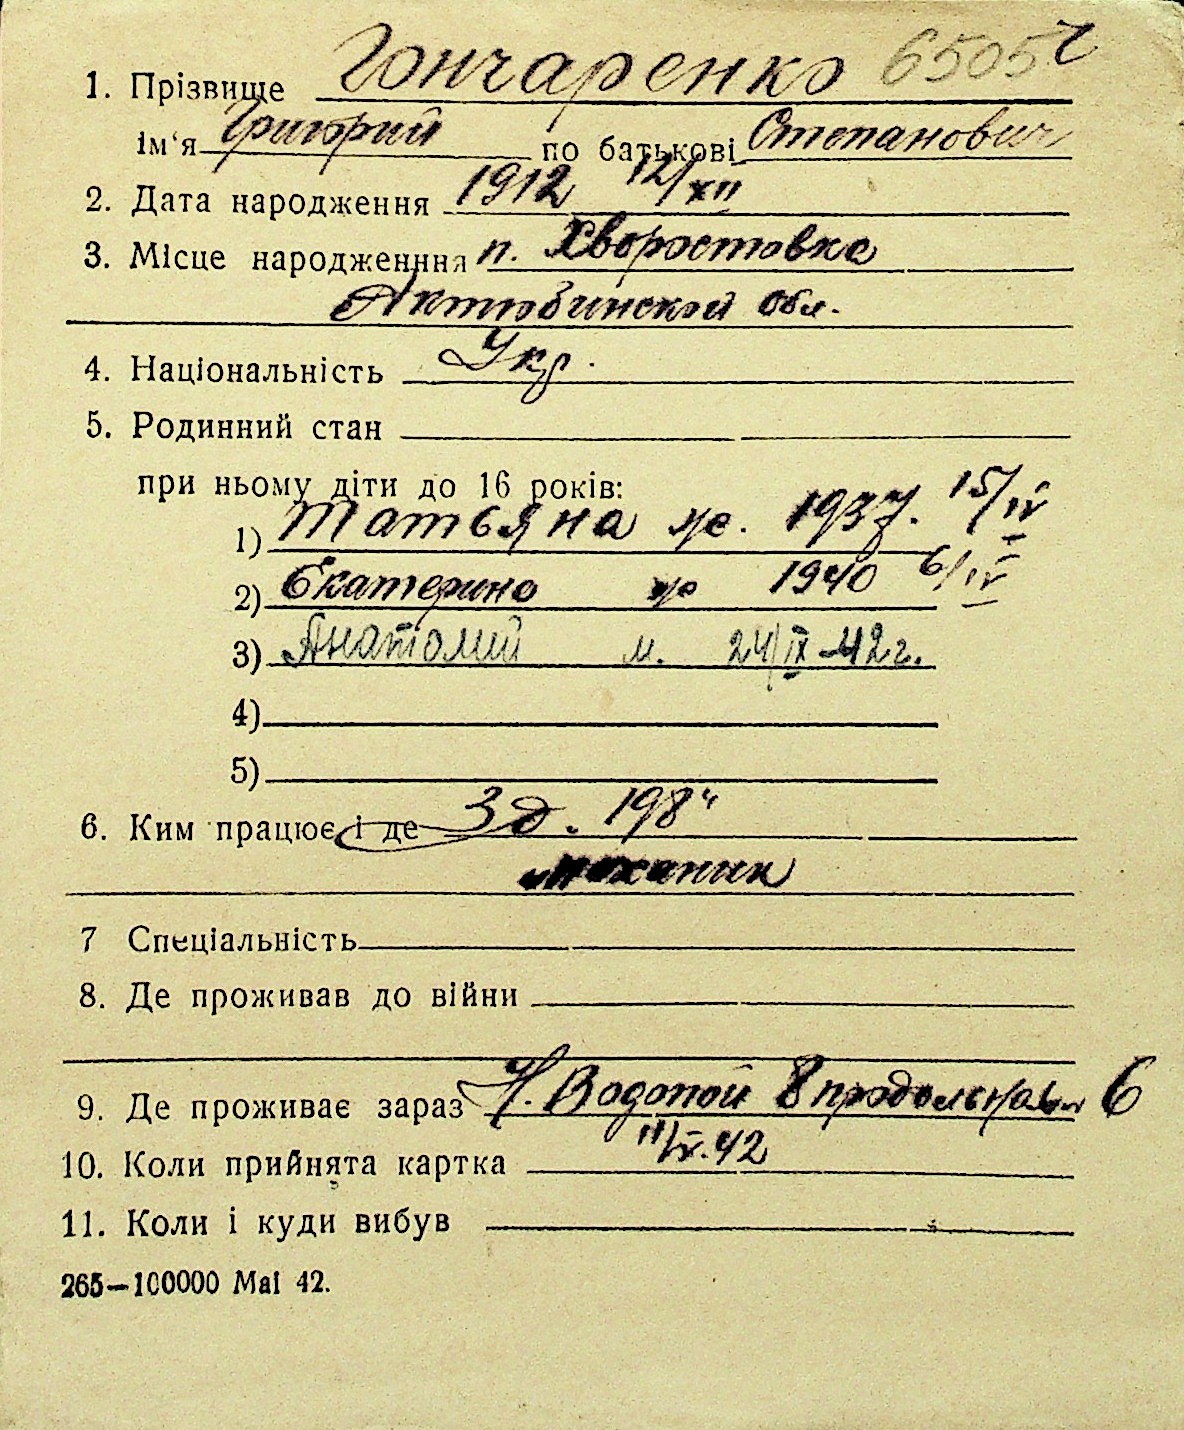 1. Прізвище Гончаренко 6505
ім‘я Григорий по батькові Степанович
2. Дата народження 1912 12/XII
3. Місце народженння п. Хворостовка
Актюбинской обл.
4. Національність Укр.
5. Родинний стан
при ньому діти до 16 років:
1) Татьяна ж. 1937. 15/IV
2) Екатерина ж 1940 6/IV
3) Анатолий м. 24/IX-42г.
4)
5)
6. Ким працює і де Зд. 198"
механик
7 Спеціальність
8. Де проживав до війни
9. Де проживає зараз Н. Водопой 8 продольная 6
10. Коли прийнята картка 42
11. Коли і куди вибув
265—100000 Маі 42.